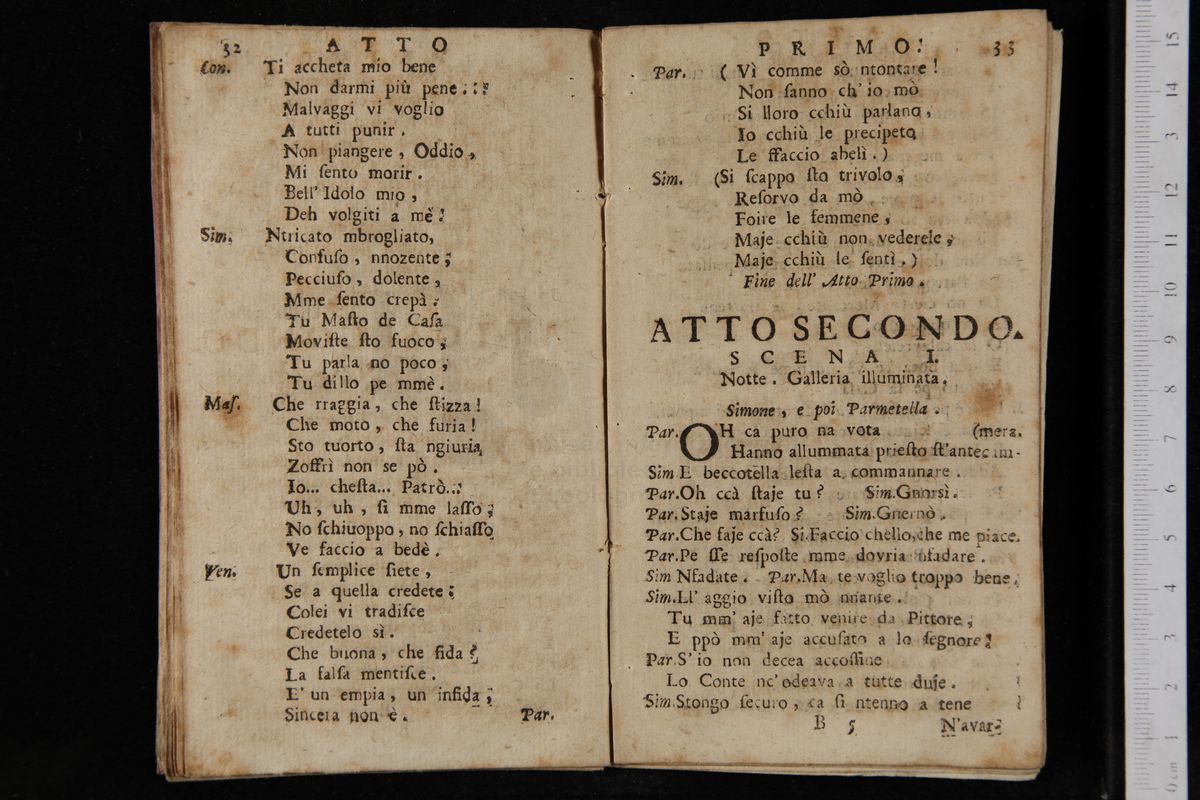 32 ATTO
Con. Ti accheta mio bene
Non darmi più pene:
Malvaggi vi voglio
A tutti punir.
Non piangere, Oddio,
Mi ſento morir.
Bell' Idolo mio,
Deh volgiti a mè!
Sim. Ntricato mbrogliato,
Confuſo, nnozente;
Pecciuſo, dolente,
Mme ſento crepà:
Tu Maſto de Caſa
Moviſte ſto fuoco;
Tu parla no poco;
Tu dillo pe mmè.
Maſ. Che rraggia, che ſtizza!
Che moto, che furia!
Sto tuorto, ſta ngiuria
Zoffrì non se pò.
Io... cheſta... Patrò...
Uh, uh, ſi mme laſſo;
No ſchiuoppo, no ſchiaſſo
Ve faccio a bedè.
Ven. Un ſemplice ſiete,
Se a quella credete;
Colei vi tradiſce
Credetelo sì.
Che buona, che fida?
La falſa mentiſce.
E' un empia, un infida;
Sincera non è. Par.
PRIMO. 33
Par. (Vì comme sò ntontare!
Non ſanno ch' io mò
Si lloro cchiù parlano,
Io cchiù le precipeto
Le ffaccio abelì.)
Sim. (Si ſcappo ſto trivolo,
Reſorvo da mò
Foire le femmene,
Maje cchiù non vederele,
Maje cchiù le ſentì.)
Fine dell' Atto Primo.
ATTO SECONDO.
SCENA I.
Notte. Galleria illuminata.
Simone, e poi Parmetella.
Par. OH ca puro na vota (mera.
Hanno allummata prieſto ſt'antecam-
Sim E beccotella leſta a commannare.
Par. Oh ccà ſtaje tu? Sim. Gnorsì.
Par. Staje marfuſo? Sim. Gnernò.
Par. Che faje ccà? Si. Faccio chello, che me piace.
Par. Pe ſſe reſpoſte mme dovria nfadare.
Sim Nfadate. Par. Ma te voglio troppo bene.
Sim. Ll' aggio viſto mò nnante.
Tu mm' aje fatto venire da Pittore,
E ppò mm' aje accuſato a lo ſegnore!
Par. S' io non decea accoſſine
Lo Conte nc'odeava a tutte duje.
Sim. Stongo ſecuro, ca ſi ntenno a tene
B 5 N'avar-